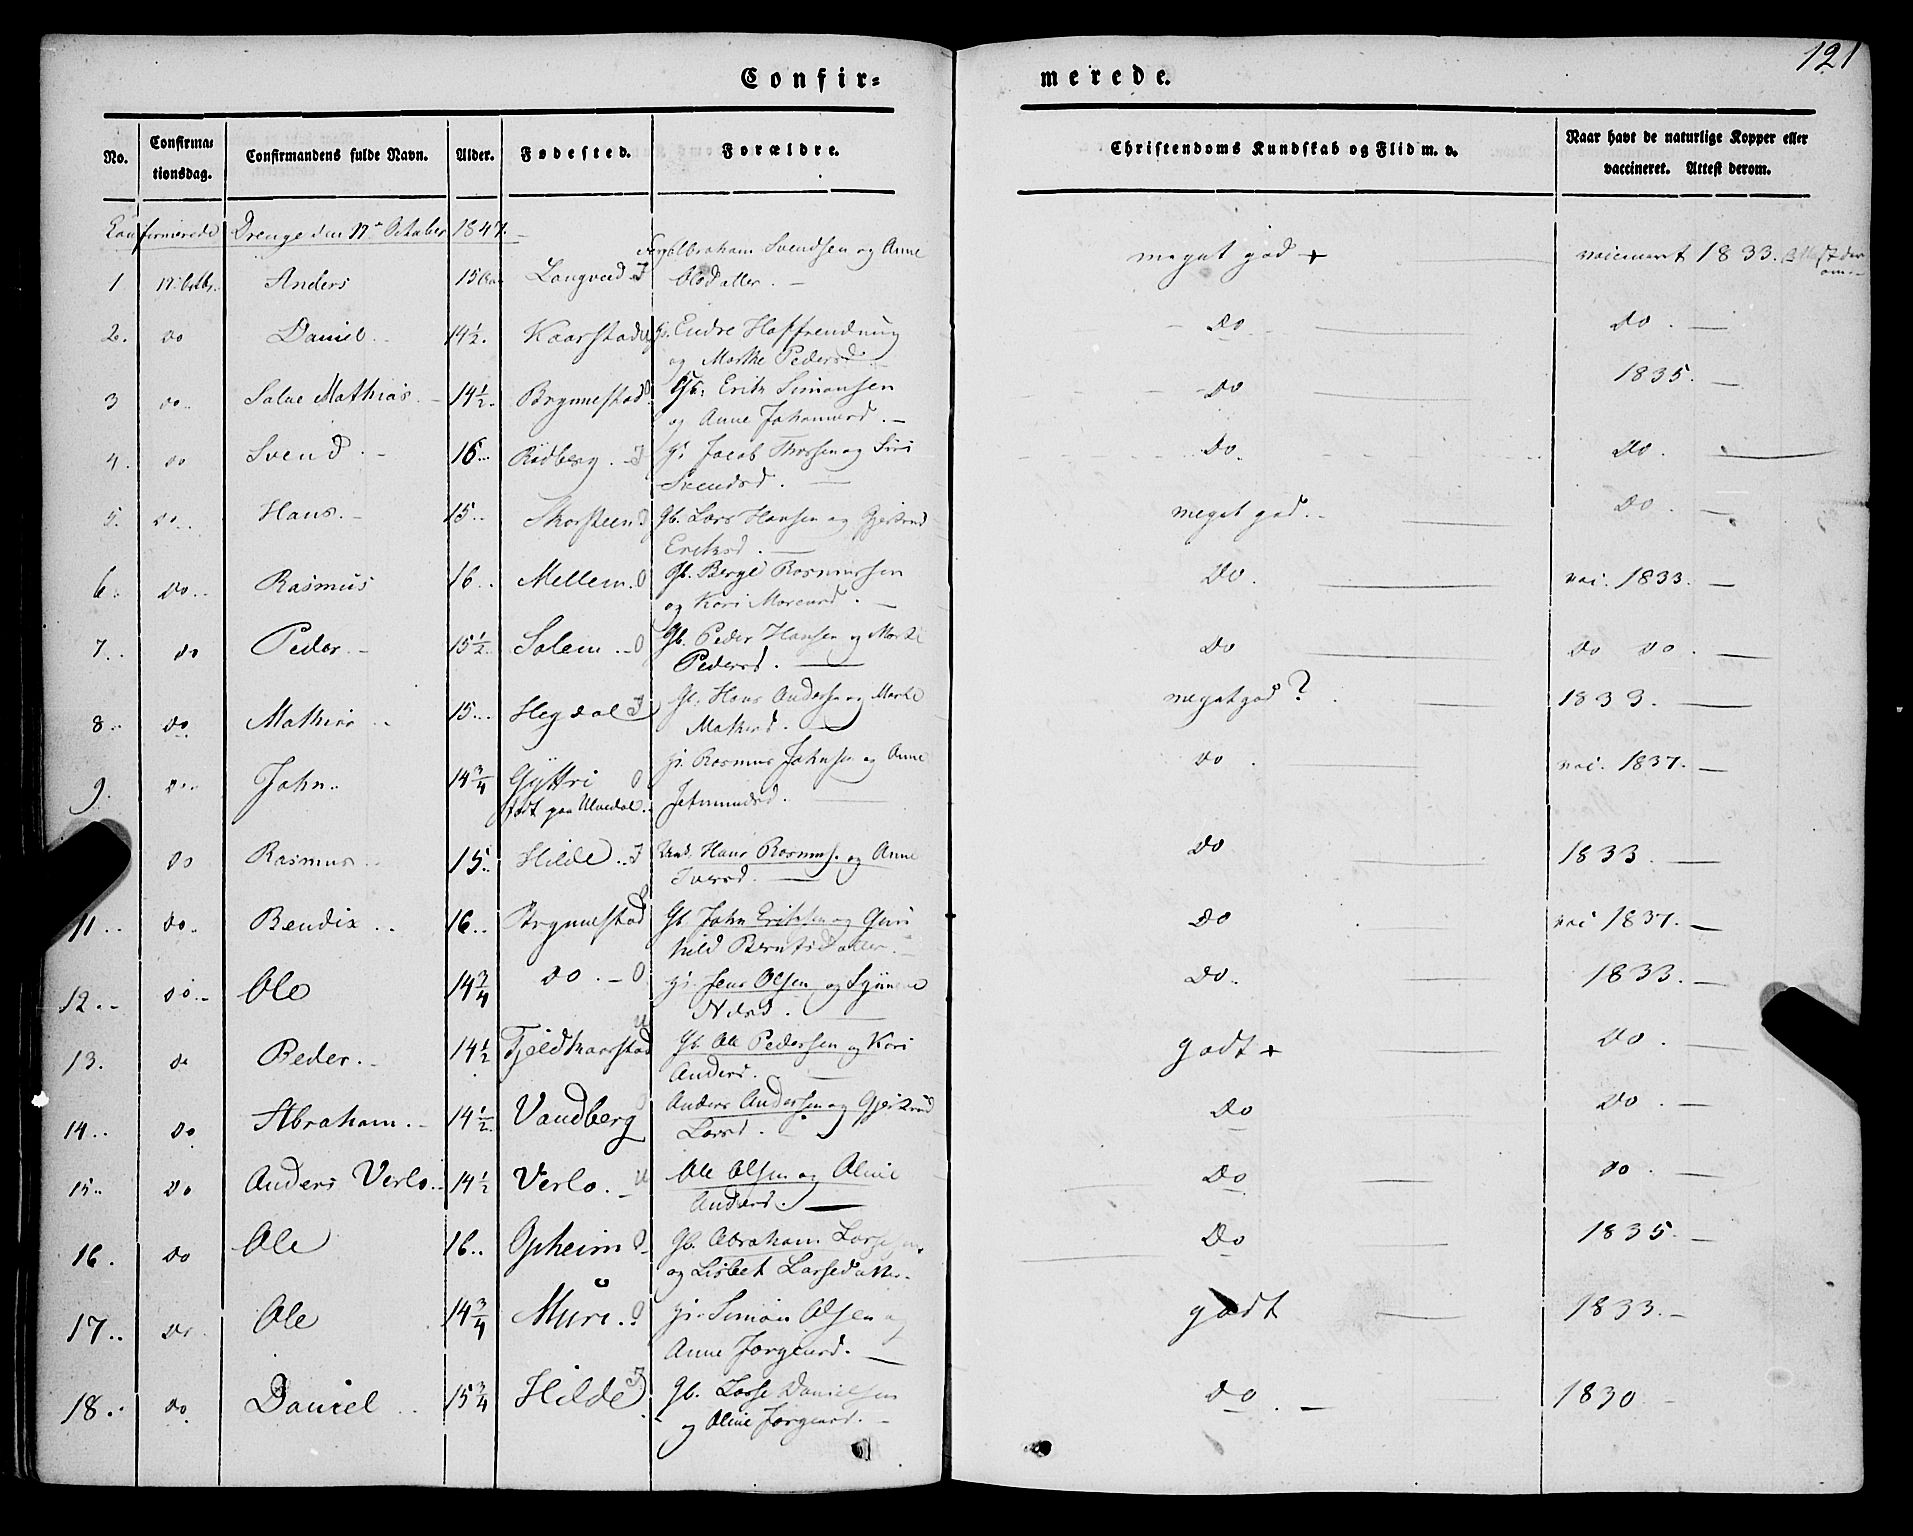 121
Confir= merede.
No. Confirma= tionsdag. Confirmandens fulde Navn. Alder. Fødested. Forældre. Christendoms Kundskab og Flid m. v. Naar havt de naturlige Kopper eller vaccineret. Attest derom.
Confirmerede Drenge den 17de October 1847.
1 17 Octbr. Anders 15 Langved J Abraham Svendsen og Anne Olsdatter. meget god + vaccineret 1833. Attest derom
2. do Daniel 14½. Kaarstad Endre og Marthe Pedersd do do.
3 do.. Salve Mathias 14½. Brynnestad Gb. Erik Simonsen og Anne Johannesd. do 1835.
4. do Svend 16.. Rødberg. J Jacob Thorsen og Siri Svendsd. do. do.
5. do.. Hans. 15.. Skorsteen Gb. Lars Hansen og Gjertrud Eriksd. meget god.. do.
6. do.. Rasmus 16.. Mellem. O Gb. Berge Rasmussen og Kari d. do. vac. 1833.
7.. do Peder. 15½. Solem. O Gb. Peder Hansen og Marthe Pedersd. do do do.
8.. do Mathias 15... Hegdal J Gb. Hans Andersen og Marthe Mathisd. meget god? 1833.
9. do.. John.. 14¾ Gyttri O født paa Ulvedal. Rasmus Johnsen og Anne Jetmundsd. do. vac. 1837.
do Rasmus 15.. Hilde.. J Hans Rasmus. og Anne Iversd. do 1833.
11.. do. Bendix.. 16.. Brynnestad Gb. John Eriksen og Gunhild Berntsdatter. do vac 1837.
12.. do.. Ole 14¾ do. O Jens Olsen og Synneve Nilsd. do. 1833.
13. do Peder. 14½ Fjeldkaarstad Gb. Ole Pedersen og Kari Andersd. godt + do.
14.. do Abraham. 14½ Vandberg Anders Andersen og Gjertrud Larsd. do do.
15.. do Anders Verlo.. 14½ Verlo. Ole Olsen og Oline Andersd. do do.
16. do Ole 16.. Opheim O Gb. Abraham og Lisbet Larsedatter. do 1835.
17.. do. Ole 14¾ Muri. O Simon Olsen og Anne Jørgensd. godt 1833.
18.. do Daniel.. 15¾ Hilde J Gb. Lasse Danielsen og Oline Jørgensd. do. 1830